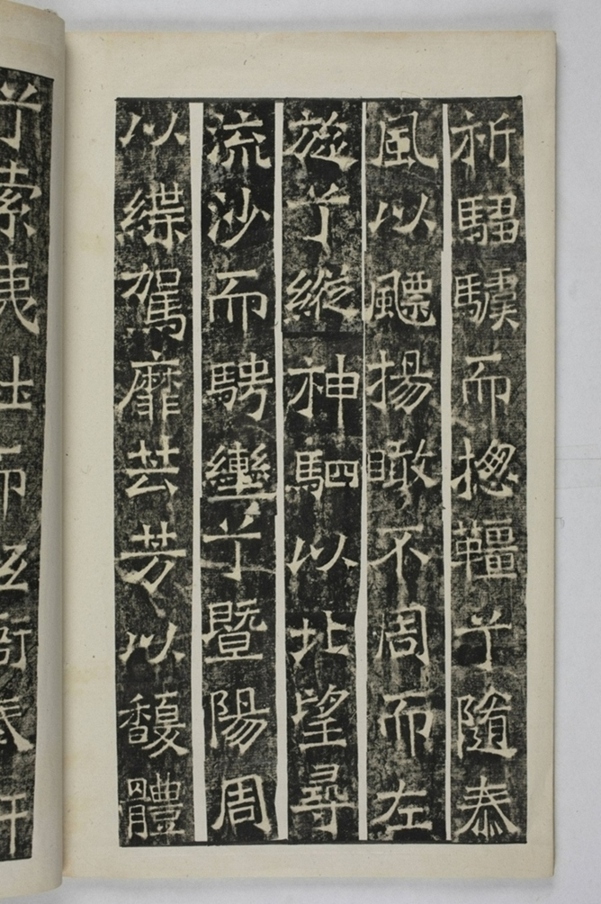 祈騮驥而揔韁兮隨泰
風以飃揚瞰不周而左
旋兮縱神駟以北望尋
流沙而騁轡兮暨陽周
以緤駕靡芸芳以馥體
兮索夷而